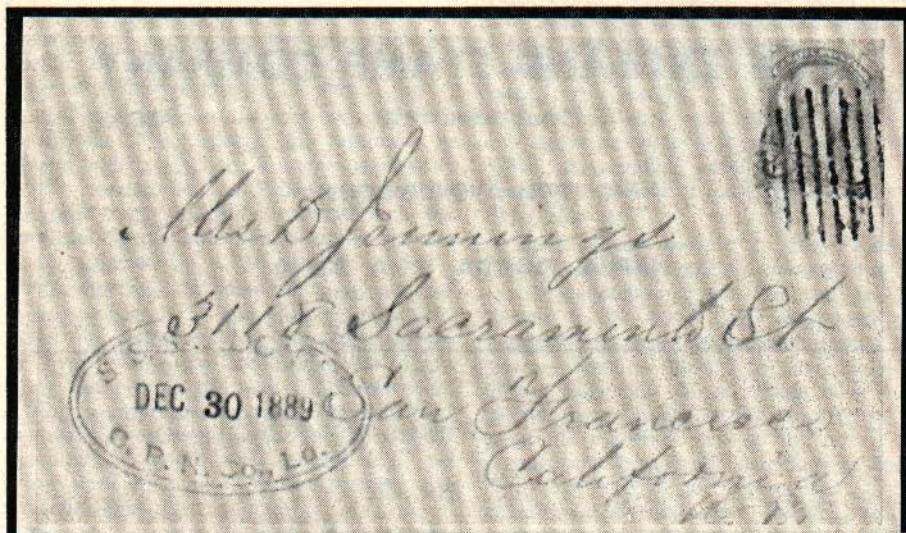 Mrs D Jennings
3118 Sacramento St
San Francisco
California
S S
DEC 30 1889
C. P. N. Co., Ld.